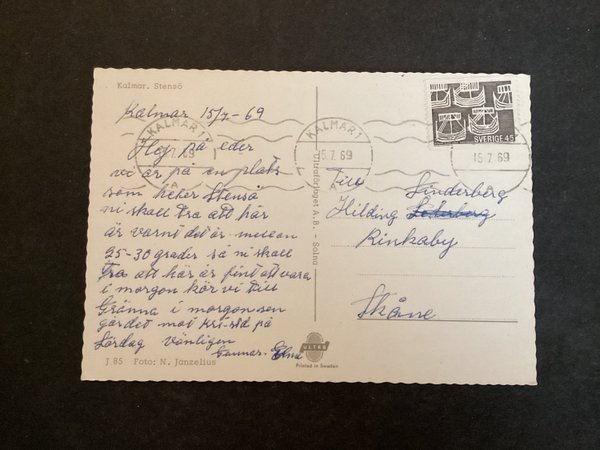 Kalmar. Stensö
Kalmar 15/7-69
Hej på eder
vi är på en plats
som heter Stensö
ni skall tra att här
är varmt det är mellan
25-30 grader så ni skall
tra att här är fint att vara
i morgon kör vi till
Gränna i morgon sen
går det mot Kri-std på
Lördag vänligen
Gunnar. Elna
J 85 Foto: N. Janzelius
Ultraförlaget A.B. - Solna
ULTRA
Printed in Sweden
KALMAR 1
15.7.69
A
KALMAR 1
15.7.69
A
15.7.69
SVERIGE 45
Till
Linderberg
Hilding Söderberg
Rinkaby
Skåne